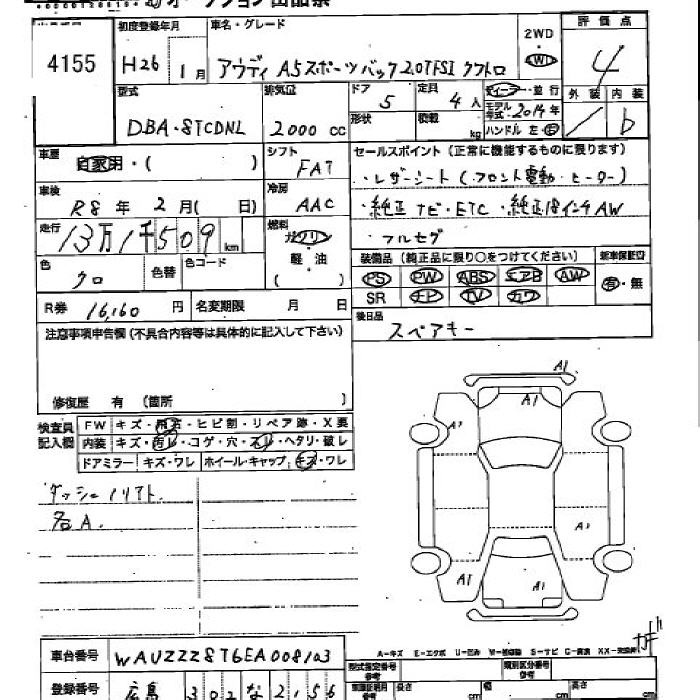 オークション出品票
4155
初度登録年月
H26 1月
車名・グレード
アウディ A5スポーツバック2.0TFSI クワトロ
2WD
4WD
評価点
4
外装 内装
b
型式
DBA-8TCDNL
排気量
2000 cc
ドア 5
形状
定員 4人
積載 kg
ディーラー・並行
モデル年式・2014年
ハンドル 左・右
車歴
自家用・( )
シフト
FAT
セールスポイント(正常に機能するものに限ります)
・レザーシート(フロント電動・ヒーター)
・純正ナビ・ETC・純正18インチAW
・フルセグ
車検
R8年 2月( 日)
冷房
AAC
走行
13万1千509km
燃料
ガソリン
・
軽・油
( )
色
クロ
色替
色コード
装備品(純正品に限り○をつけてください)
新車保証書
PS PW ABS エアB AW
有・無
SR ナビ TV カワ
R券 16,160円
名変期限 月 日
後日品
スペアキー
注意事項申告欄(不具合内容等は具体的に記入して下さい)
修復歴 有 (箇所 )
検査員記入欄
FW キズ・飛石・ヒビ割・リペア跡・X要
内装 キズ・汚レ・コゲ・穴・スレ・ヘタリ・破レ
ドアミラー キズ・ワレ ホイール・キャップ キズ・ワレ
ダッシュノリアト.
名A.
A1
A1
A1
A1
A1
A1
A-キズ E-エクボ U-凹み W-補修跡 S-サビ C-腐食 XX-交換済
車台番号 WAUZZZ8T6EA008103
登録番号 広島 302 な 2156
型式指定番号 参考
類別区分番号 参考
長さ cm
幅 cm
高さ cm